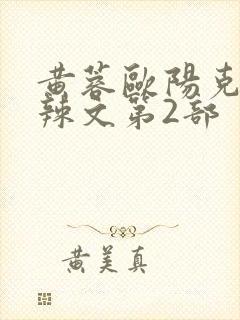 黄蓉歐陽克
辣文第2部
黄美真